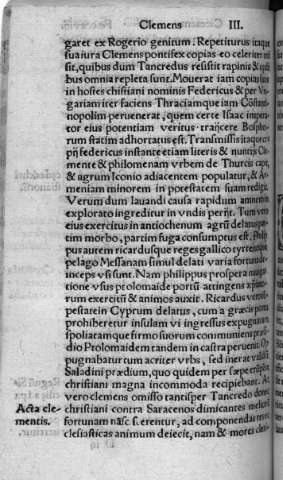 Clemens III.
garet ex Rogerio genitum. Repetiturus itaque
sua iura Clemens pontifex copias eo celeriter
sit, quibus dum Tancredus resistit rapinis & 
bus omnia repleta sunt. Mouerat iam copias suas
in hostes christiani nominis Federicus & per Vn
gariam iter faciens Thraciamque iam Cōstanti
nopolim peruenerat, quem certe Isaac impera
tor eius potentiam veritus traijcere Bospho
rum statim adhortatus est. Transmissis itaque
federicus instante etiam literis & nuntijs Cle
mente & philomenam vrbem de Thurcis capit,
& agrum Iconio adiacentem populatur, & Ar
meniam minorem in potestatem suam redigit.
Verum dum lauandi causa rapidum amnem in
explorato ingreditur in vndis perijt. Tum vero
eius exercitus in antiochenum agrum delatus par
tim morbo, partim fuga consumptus est. Philip
pus autem ricardusque reges gallico tyrenoque
pelago Messanam simul delati varia fortuna de
inceps vsi sunt. Nam philippus prospera nauiga
tione vsus ptolomaide portū attingens
rum exercitū & animos auxit. Ricardus vero tem
pestate in Cyprum delatus, cum a græcis portu
prohiberetur insulam vi ingressus expugnat
spoliatamque firmo suorum communiens præsi
dio Ptolomaidem tandem in castra peruenit. Op
pugnabatur tum acriter vrbs, sed inerat validum
Saladini præsidium, quo quidem per sæpe eruptione
christiani magna incommoda recipiebant. At
vero clemens omisso tantisper Tancredo dum
Acta cle- christiani contra Saracenos dimicantes meliorem
mentis. fortunam nascerentur, ad componendas res ec
clesiasticas animum deiecit, nam & mores cleri